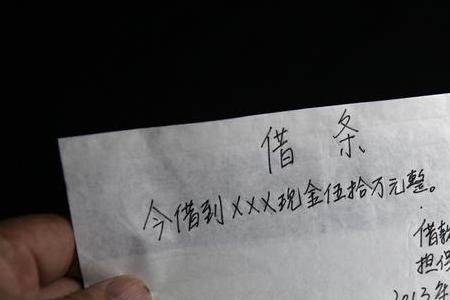 借条
今借到XXX现金伍拾万元整。
借款
担保
2013年